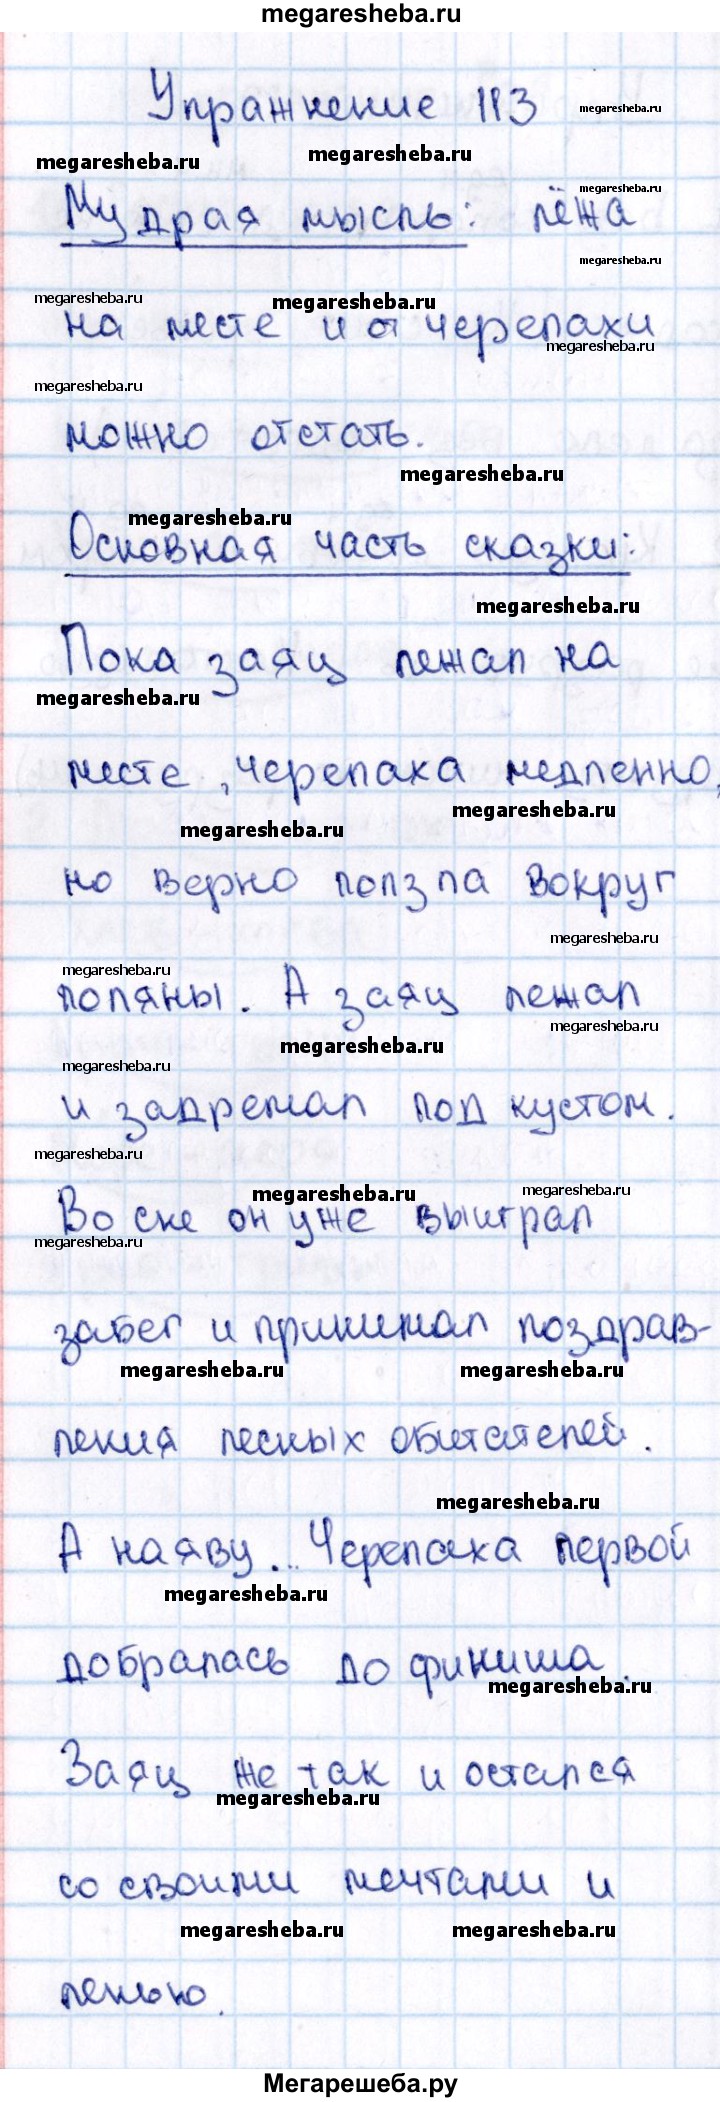 megaresheba.ru
Упражнение 113
megaresheba.ru
megaresheba.ru megaresheba.ru
Мудрая мысль: лёжа
megaresheba.ru
megaresheba.ru
megaresheba.ru megaresheba.ru
на месте и от черепахи
megaresheba.ru
megaresheba.ru
можно отстать.
megaresheba.ru
megaresheba.ru
Основная часть сказки:
megaresheba.ru
Пока заяц лежал на
megaresheba.ru
месте, черепаха медленно,
megaresheba.ru megaresheba.ru
но верно ползла вокруг
megaresheba.ru
megaresheba.ru
поляны. А заяц лежал
megaresheba.ru
megaresheba.ru
megaresheba.ru
и задремал под кустом.
megaresheba.ru
megaresheba.ru megaresheba.ru
Во сне он уже выиграл
megaresheba.ru
забег и принимал поздрав-
megaresheba.ru megaresheba.ru
ления лесных обитателей.
megaresheba.ru
А наяву... Черепаха первой
megaresheba.ru
добралась до финиша.
megaresheba.ru
Заяц же так и остался
megaresheba.ru
со своими мечтами и
megaresheba.ru megaresheba.ru
ленью.
Мегарешеба.ру